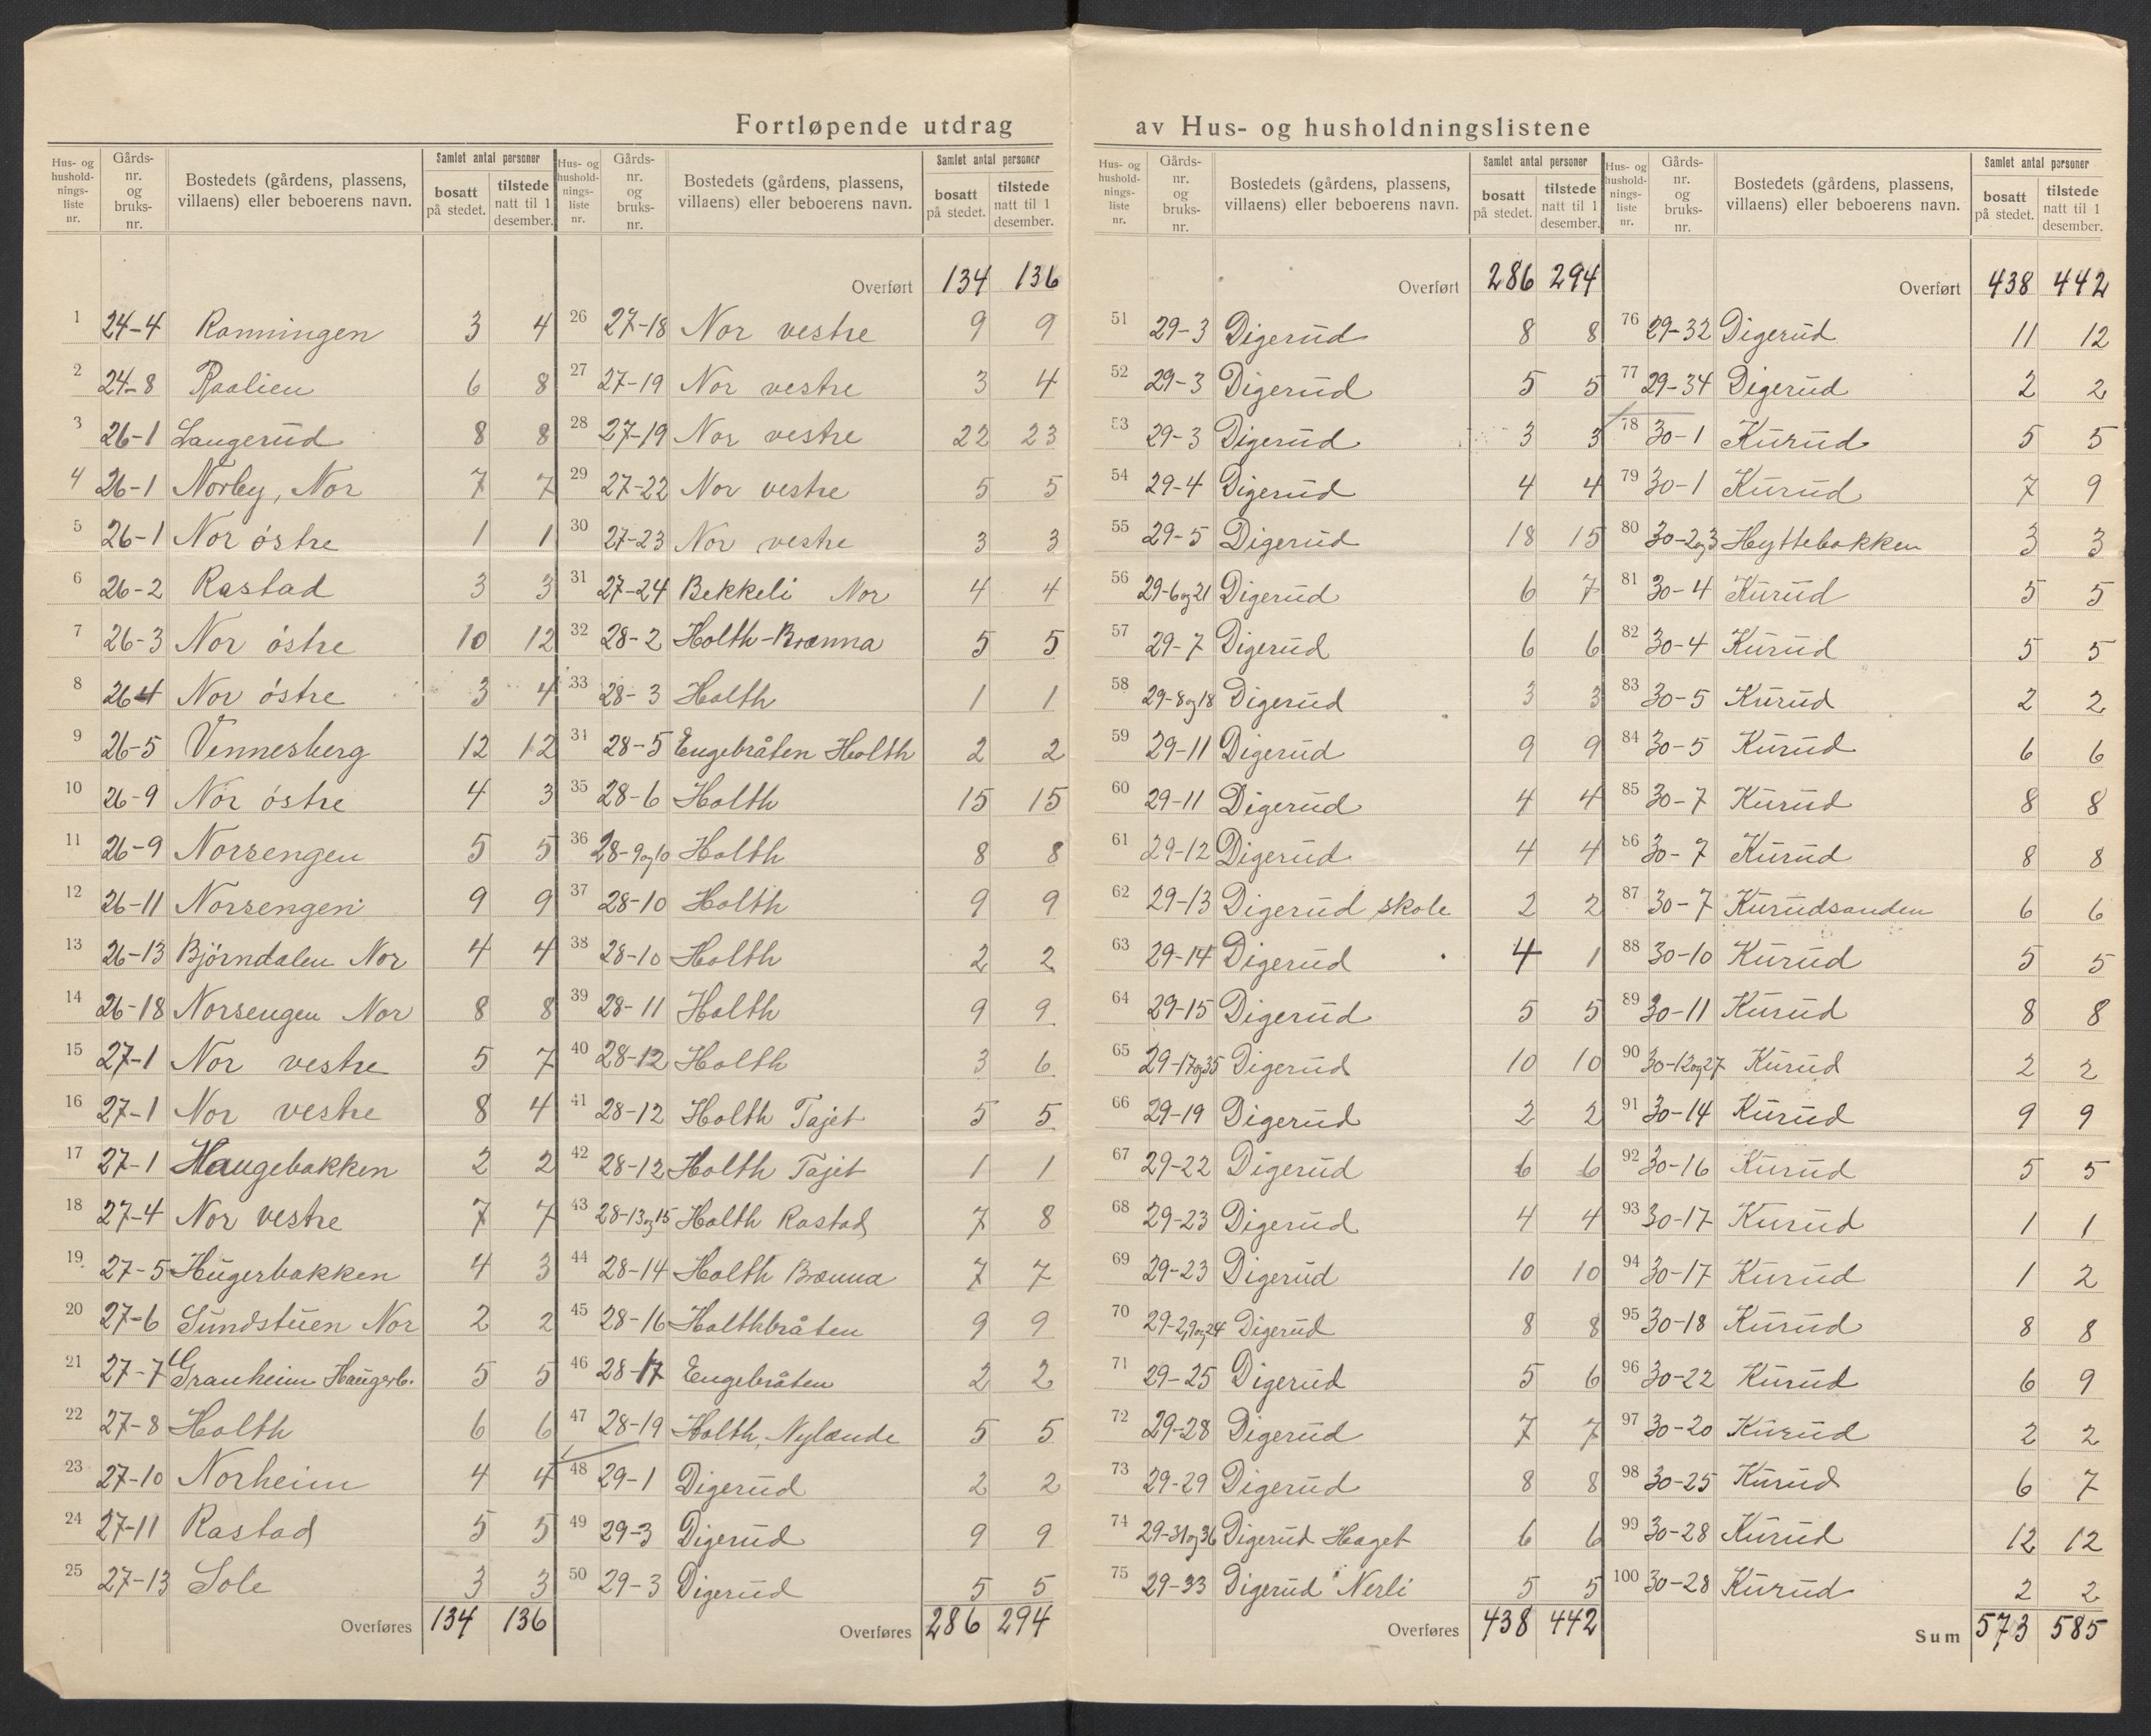 Fortløpende utdrag av Hus- og husholdningslistene
Hus- og husholdnings-liste nr. | Gårds-nr. og bruks-nr. | Bostedets (gårdens, plassens, villaens) eller beboerens navn. | Samlet antal personer | bosatt på stedet. | tilstede natt til 1 desember.
1 24-4 Ranningen 3 4
2 24-8 Raalien 6 8
3 26-1 Laugerud 8 8
4 26-1 Norby, Nor 7 7
5 26-1 Nor østre 1 1
6 26-2 Rastad 3 3
7 26-3 Nor østre 10 12
8 26-4 Nor østre 3 4
9 26-5 Vennesberg 12 12
10 26-9 Nor østre 4 3
11 26-9 Norsengen 5 5
12 26-11 Norsengen 9 9
13 26-13 Bjørndalen Nor 4 4
14 26-18 Norsengen Nor 8 8
15 27-1 Nor vestre 5 7
16 27-1 Nor vestre 8 4
17 27-1 Haugebakken 2 2
18 27-4 Nor vestre 7 7
19 27-5 Hugerbakken 4 3
20 27-6 Sundstuen Nor 2 2
21 27-7 Granheim Haugerb. 5 5
22 27-8 Holth 6 6
23 27-10 Norheim 4 4
24 27-11 Rastad 5 5
25 27-13 Sole 3 3
Overføres 134 136
Hus- og husholdnings-liste nr. | Gårds-nr. og bruks-nr. | Bostedets (gårdens, plassens, villaens) eller beboerens navn. | Samlet antal personer | bosatt på stedet. | tilstede natt til 1 desember.
Overført 134 136
26 27-18 Nor vestre 9 9
27 27-19 Nor vestre 3 4
28 27-19 Nor vestre 22 23
29 27-22 Nor vestre 5 5
30 27-23 Nor vestre 3 3
31 27-24 Bekkeli Nor 4 4
32 28-2 Holth-Brænna 5 5
33 28-3 Holth 1 1
34 28-5 Engebråten Holth 2 2
35 28-6 Holth 15 15
36 28-9og10 Holth 8 8
37 28-10 Holth 9 9
38 28-10 Holth 2 2
39 28-11 Holth 9 9
40 28-12 Holth 3 6
41 28-12 Holth Tajet 5 5
42 28-12 Holth Tajet 1 1
43 28-13og15 Holth Rastad 7 8
44 28-14 Holth Brænna 7 7
45 28-16 Holthbråten 9 9
46 28-17 Engebråten 2 2
47 28-19 Holth, Nylænde 5 5
48 29-1 Digerud 2 2
49 29-3 Digerud 9 9
50 29-3 Digerud 5 5
Overføres 286 294
Hus- og husholdnings-liste nr. | Gårds-nr. og bruks-nr. | Bostedets (gårdens, plassens, villaens) eller beboerens navn. | Samlet antal personer | bosatt på stedet. | tilstede natt til 1 desember.
Overført 286 294
51 29-3 Digerud 8 8
52 29-3 Digerud 5 5
53 29-3 Digerud 3 3
54 29-4 Digerud 4 4
55 29-5 Digerud 18 15
56 29-6og21 Digerud 6 7
57 29-7 Digerud 6 6
58 29-8og18 Digerud 3 3
59 29-11 Digerud 9 9
60 29-11 Digerud 4 4
61 29-12 Digerud 4 4
62 29-13 Digerud skole 2 2
63 29-14 Digerud 4 1
64 29-15 Digerud 5 5
65 29-17og35 Digerud 10 10
66 29-19 Digerud 2 2
67 29-22 Digerud 6 6
68 29-23 Digerud 4 4
69 29-23 Digerud 10 10
70 29-2,9og24 Digerud 8 8
71 29-25 Digerud 5 6
72 29-28 Digerud 7 7
73 29-29 Digerud 8 8
74 29-31og36 Digerud Haget 6 6
75 29-33 Digerud Nerli 5 5
Overføres 438 442
Hus- og husholdnings-liste nr. | Gårds-nr. og bruks-nr. | Bostedets (gårdens, plassens, villaens) eller beboerens navn. | Samlet antal personer | bosatt på stedet. | tilstede natt til 1 desember.
Overført 438 442
76 29-32 Digerud 11 12
77 29-34 Digerud 2 2
78 30-1 Kurud 5 5
79 30-1 Kurud 7 9
80 30-2og3 Hyttebakken 3 3
81 30-4 Kurud 5 5
82 30-4 Kurud 5 5
83 30-5 Kurud 2 2
84 30-5 Kurud 6 6
85 30-7 Kurud 8 8
86 30-7 Kurud 8 8
87 30-7 Kurudsanden 6 6
88 30-10 Kurud 5 5
89 30-11 Kurud 8 8
90 30-12og27 Kurud 2 2
91 30-14 Kurud 9 9
92 30-16 Kurud 5 5
93 30-17 Kurud 1 1
94 30-17 Kurud 1 2
95 30-18 Kurud 8 8
96 30-22 Kurud 6 9
97 30-20 Kurud 2 2
98 30-25 Kurud 6 7
99 30-28 Kurud 12 12
100 30-28 Kurud 2 2
Sum 573 585